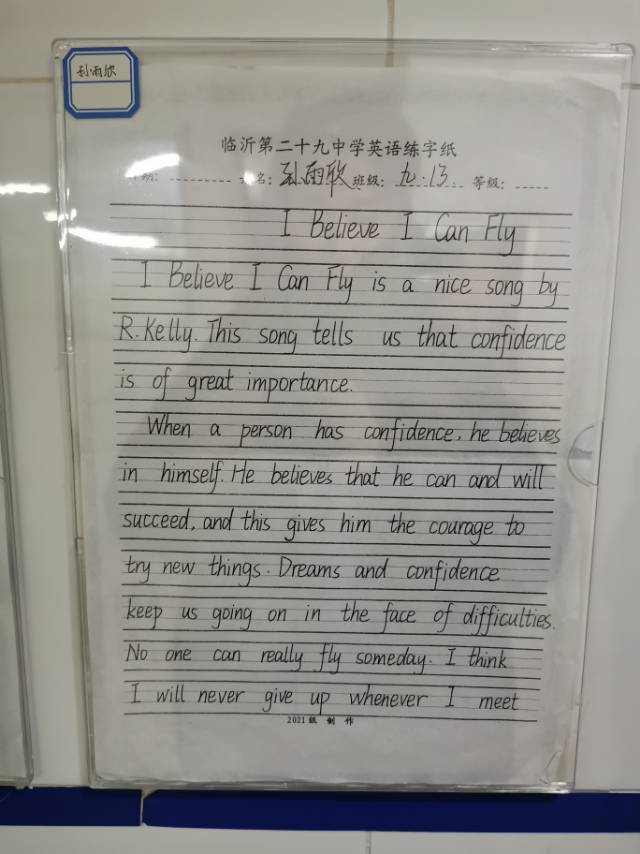 孙雨欣
临沂第二十九中学英语练字纸
名: 孙雨欣 班级: 九.13 等级:
I Believe I Can Fly
I Believe I Can Fly is a nice song by
R.Kelly. This song tells us that confidence
is of great importance.
When a person has confidence, he believes
in himself. He believes that he can and will
succeed, and this gives him the courage to
try new things. Dreams and confidence
keep us going on in the face of difficulties.
No one can really fly someday. I think
I will never give up whenever I meet
2021级 制 作